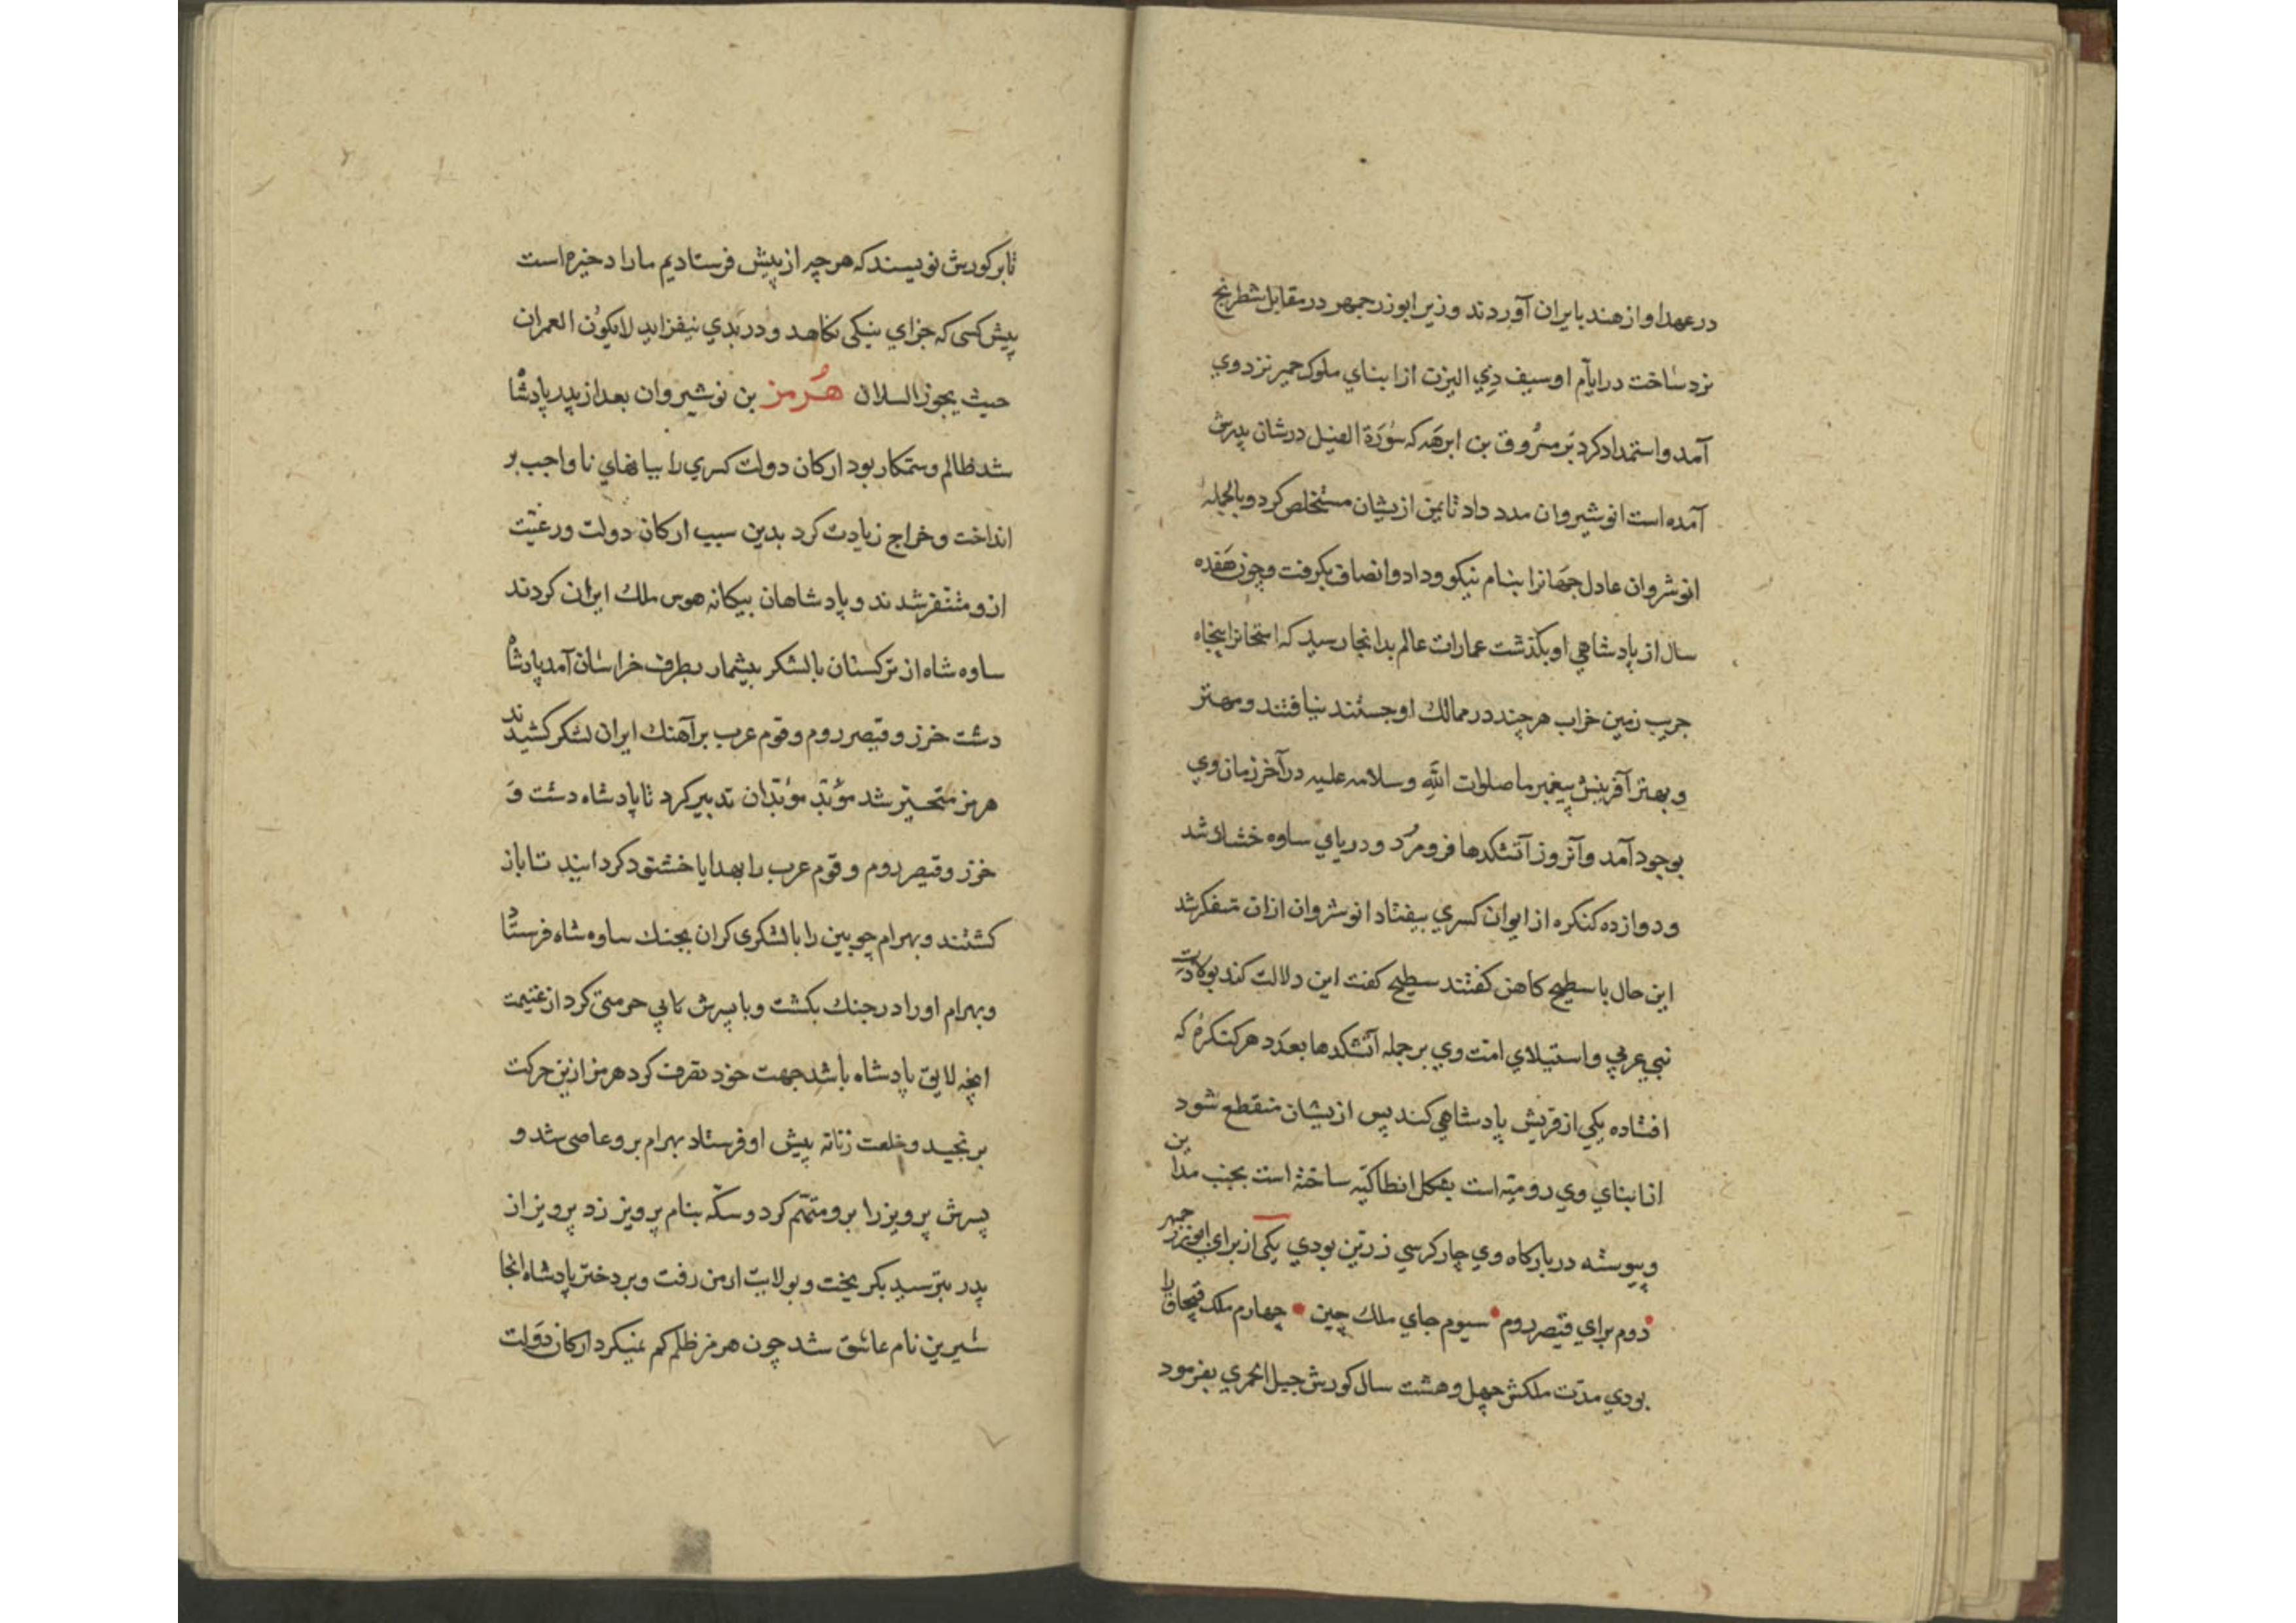 در عهد او از هند بایران آوردند وزیر ابوزرجمهر در مقابل شطرنج
نرد ساخت در ایام او سیف ذي الیزن از ابناي ملوک حمیر نزد وي
آمد و استمداد کرد بر مسروق بن ابرهه که سورة الفیل در شان پدرش
آمده است انوشیروان مدد داد تا یمن ازیشان مستخلص کرد و بالجمله
انوشروان عادل جهانرا بنام نیکو و داد و انصاف بگرفت و چون هفده
سال از پادشاهي او بگذشت عمارات عالم بدانجا رسید که امتحانرا پنجاه
جریب زمین خراب هر چند در ممالک او جستند نیافتند و مهتر
و بهتر آفرینش پیغمبر ما صلوات الله و سلامه علیه در آخر زمان وي
بوجود آمد و آنروز آتشکدها فرو مُرد و دریاي ساوه خشک شد
و دوازده کنکره از ایوان کسري بیفتاد انوشروان ازان متفکر شد
این حال با سطیح کاهن کفتند سطیح کفت این دلالت کند بولادت
نبي عربي و استیلاي امت وي بر جمله آتشکدها بعدد هر کنکرهٔ که
افتاده یکي از قریش پادشاهي کند پس ازیشان منقطع شود
از ابناي وي رومیّه است بشکل انطاکیّه ساخته است بجنب مداین
و پیوسته در بارکاه وي چار کرسي زرّین بودي یکی از براي ابوزرجمهر
دوم براي قیصر روم سیوم جاي ملک چین چهارم ملک قبچاق را
بودي مدّت ملکش چهل و هشت سال کورش جبل الحمري بفرمود
تا بر کورش نویسند که هر چه از پیش فرستادیم ما را دخیره است
پیش کسی که جزاي نیکی نکاهد و در بدي نیفزاید لایکون العمران
حیث یجوز السلان هُرمز بن نوشیروان بعد از پدر پادشاه
شد ظالم و ستمکار بود ارکان دولت کسري را ببیانهاي نا واجب بر
انداخت و خراج زیادت کرد بدین سبب ارکان دولت و رعیّت
ازو متنفر شدند و پادشاهان بیکانه هوس ملک ایران کردند
ساوه شاه از ترکستان با لشکر بیشمار بطرف خراسان آمد پادشاه
دشت خزر و قیصر روم و قوم عرب بر آهنک ایران لشکر کشیدند
هرمز متحیّر شد مؤبد مؤبدان تدبیر کرد تا پادشاه دشت و
خزر و قیصر روم و قوم عرب را بهدایا خشنود کردانید تا باز
کشتند و بهرام چوبین را با لشکری کران بجنک ساوه شاه فرستاد
و بهرام او را در جنک بکشت و با پسرش نابي حرمتی کرد از غنیمت
انچه لایق پادشاه باشد جهت خود تصرف کرد هرمز ازین حرکت
برنجید و خلعت زنانه پیش او فرستاد بهرام برو عاصی شد و
پسرش پرویز را برو متهّم کرد و سکّه بنام پرویز زد پرویز از
پدر بترسید بکریخت و بولایت ارمن رفت و بر دختر پادشاه انجا
شیرین نام عاشق شد چون هرمز ظلم کم نمیکرد ارکان دولت